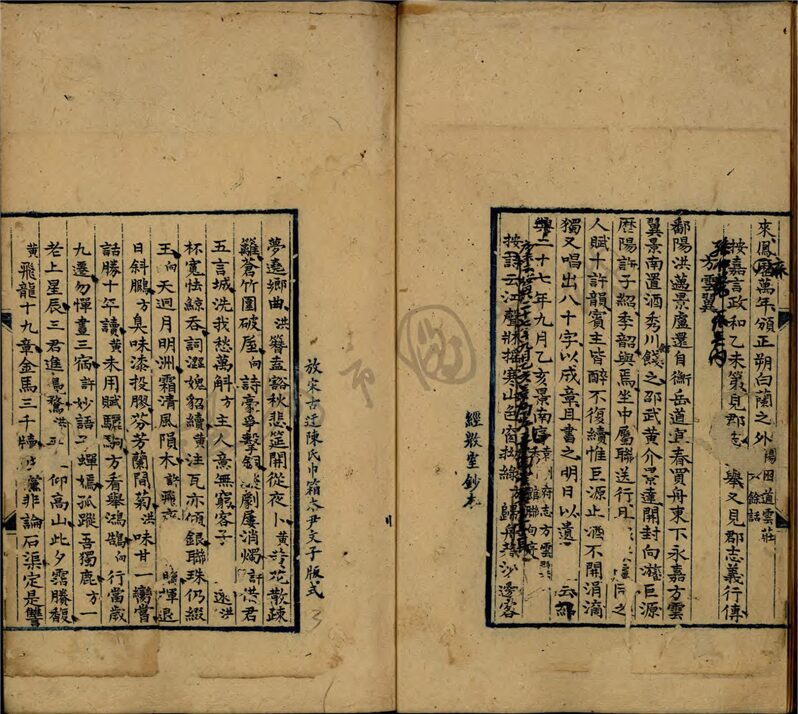 來鳳曆萬年頒正朔白蘭之外陽田道雲莊
按嘉言政和乙未第見郡志 舉又見郡志義行傳
方雲翼
鄱陽洪萬景盧還自衡岳道宜春買舟東下永嘉方雲
翼景南置酒秀川餞之邵武黃介景達開封向 巨源
歷陽許子紹季韶與焉坐中屬聯送行且
人賦十許韻賓主皆醉不復續惟巨源止酒不開涓滴
獨又唱出八十字以成章且書之明日以遺 云紹
興二十七年九月乙亥景南序
按詩云江聲 搖寒山色窗 歸舟 沙邊客
經敤室鈔本
放宋古迂陳氏巾箱本尹文子版式
夢遶鄉曲洪簪盍豁秋悲筵開從夜卜黃 花散疎
籬蒼竹圍破屋向詩豪爭擊銅 劇屢消燭許洪君
五言城洗我愁萬斛方主人意無窮客子 遂洪
杯寬怯鯨吞詞澀媿貂續黃注瓦亦傾銀聯珠仍綴
玉向天迥月明洲霜清風隕木許飛 暉退
日斜鵬方臭味漆投膠芬芳蘭間菊洪味甘一臠嘗
話勝十年讀黃未用賦驪駒方看舉鴻鵠向行當歲
九遷勿憚晝三宿許妙語 蟬嫣孤蹤吾獨鹿方一
老上星辰三君進 鶩洪 仰高山此夕 勝馥
黃飛龍十九章金馬三千牘 非論石渠定是讐